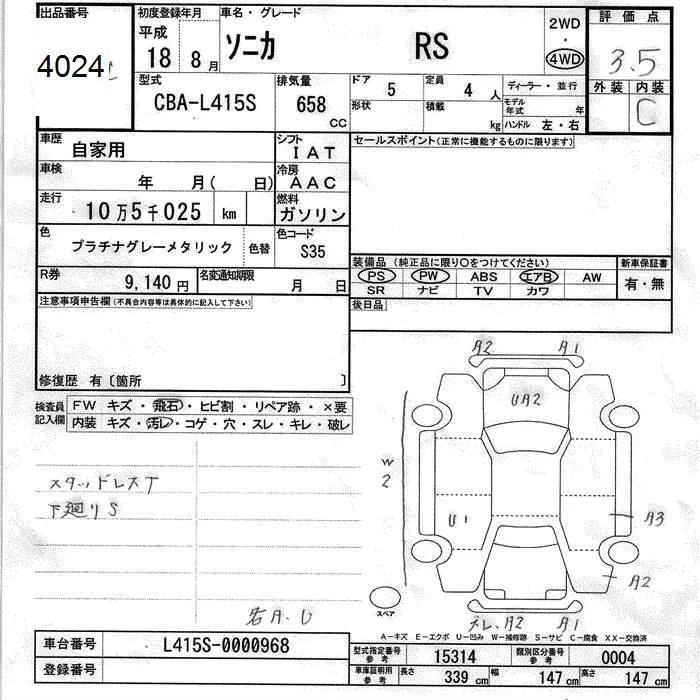 出品番号 初度登録年月 車名・グレード 2WD 評価点
4024 平成 18 8月 ソニカ RS ・ 4WD 3.5
型式 CBA-L415S 排気量 658 CC ドア 5 定員 4 人 ディーラー・並行 外装 内装
形状 積載 kg モデル年式 年 C
ハンドル 左・右
車歴 自家用 シフト IAT セールスポイント(正常に機能するものに限ります)
車検 年 月( 日) 冷房 AAC
走行 10万5千025 km 燃料 ガソリン
色 プラチナグレーメタリック 色替 色コード S35
装備品 (純正品に限り○をつけてください) 新車保証書
R券 9,140円 名変通知期限 月 日 PS PW ABS エアB AW 有・無
SR ナビ TV カワ
注意事項申告欄(不具合内容等は具体的に記入して下さい) 後日品
修復歴 有〔箇所 〕
検査員記入欄 FW キズ・飛石・ヒビ割・リペア跡・×要
内装 キズ・汚レ・コゲ・穴・スレ・キレ・破レ
A2 A1
UA2
W2
スタッドレスT
下廻りS
U1 A3
A2
スペア
右A.U
A2 A1
A−キズ E−エクボ U−凹み W−補修跡 S−サビ C−腐食 XX−交換済
車台番号 L415S-0000968 型式指定番号 参考 15314 類別区分番号 参考 0004
登録番号 車庫証明用 参考 長さ 339 cm 幅 147 cm 高さ 147 cm